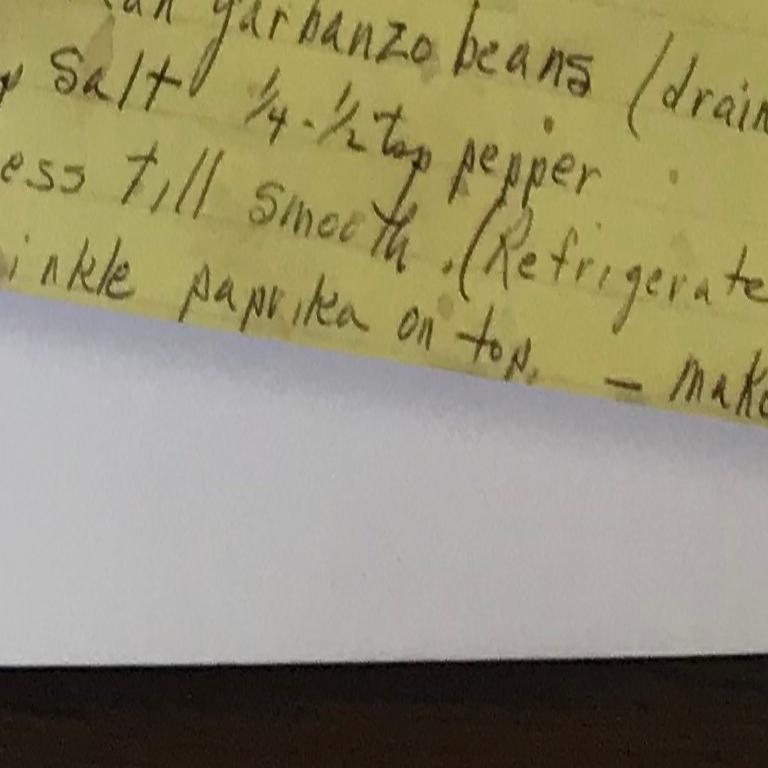 garbanzo beans (drain
salt 1/4 - 1/2 tsp pepper
ess till smooth. (Refrigerate
inkle paprika on top. — make